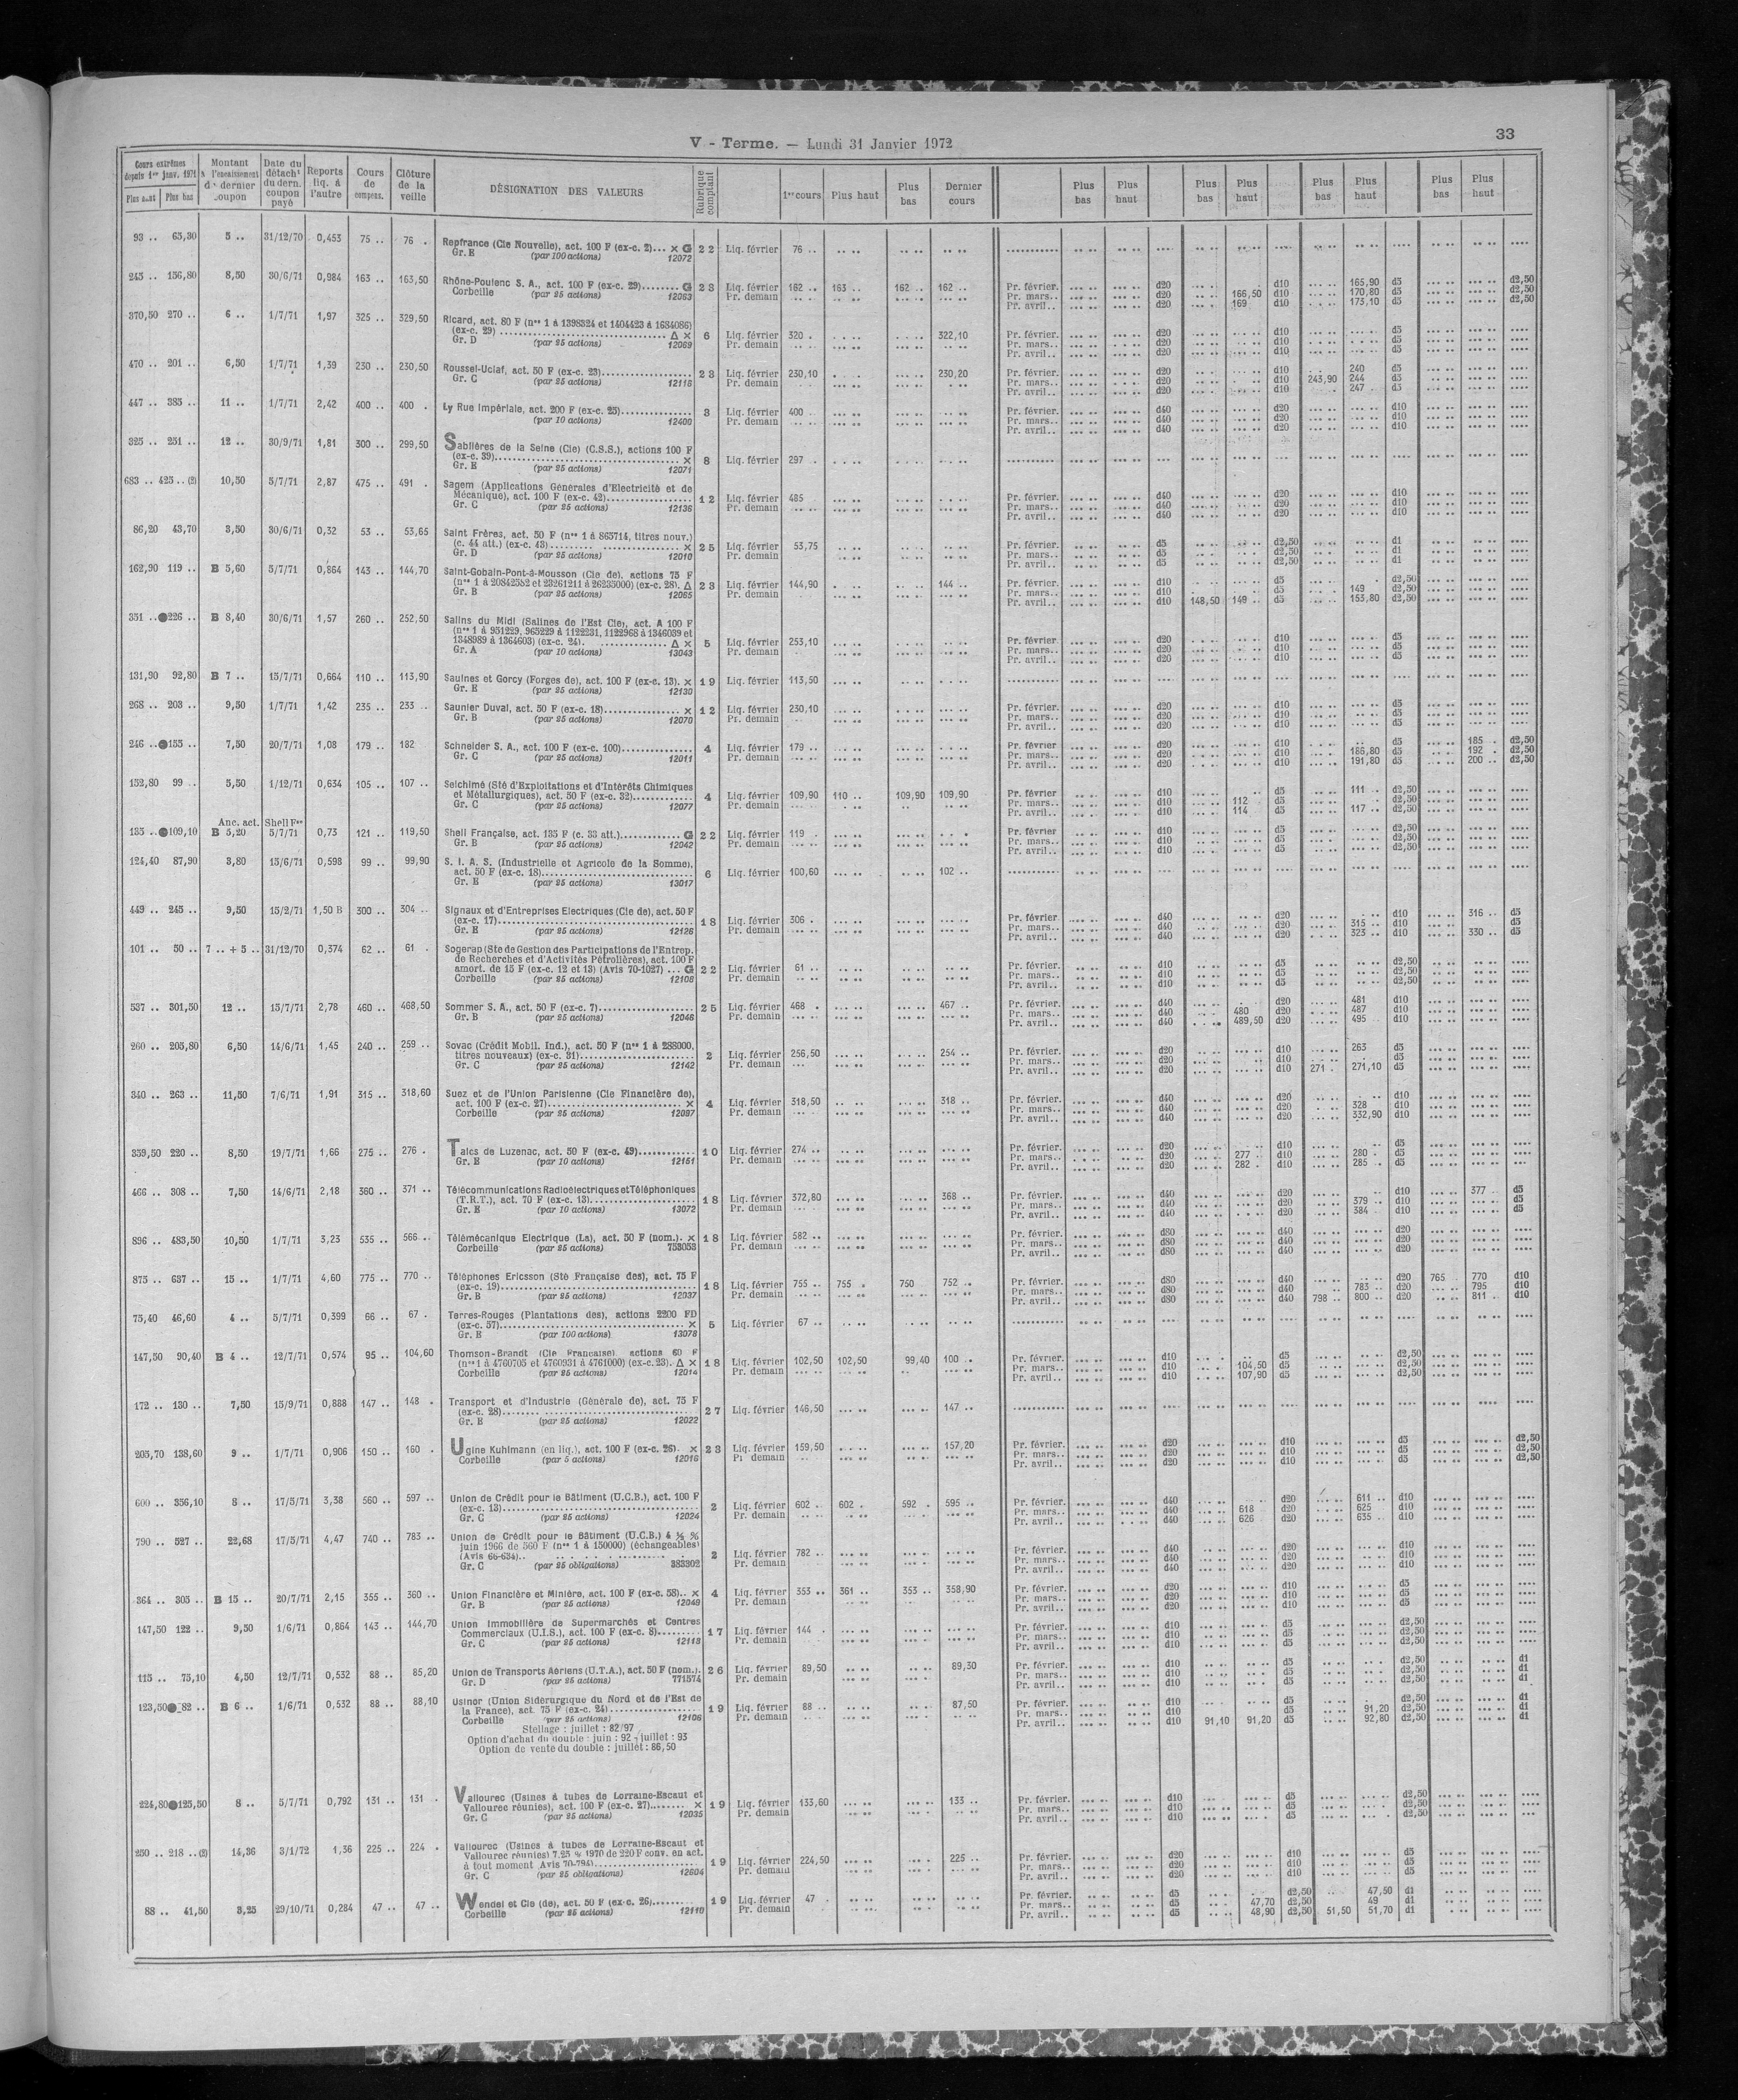 V - Terme. — Lundi 31 Janvier 1972
33
Cours extrêmes depuis 1er janv. 1971 Plus haut Plus bas
Montant à l'encaissement du dernier coupon
Date du détacht du dern. coupon payé
Reports liq. à l'autre
Cours de compens.
Clôture de la veille
DÉSIGNATION DES VALEURS
Rubrique comptant
1er cours Plus haut Plus bas Dernier cours
Plus bas Plus haut Plus bas Plus haut Plus bas Plus haut Plus bas Plus haut
93 .. 65,30 5 .. 31/12/70 0,453 75 .. 76 . Repfrance (Cie Nouvelle), act. 100 F (ex-c. 2)... × G 22 Liq. février 76 ..
Gr. E (par 100 actions) 12072
245 .. 156,80 8,50 30/6/71 0,984 163 .. 163,50 Rhône-Poulenc S. A., act. 100 F (ex-c. 29)........ G 23 Liq. février 162 .. 163 .. 162 .. 162 .. Pr. février. d20 d10 165,90 d5 d2,50
Corbeille (par 25 actions) 12063 Pr. demain Pr. mars.. d20 166,50 d10 170,80 d5 d2,50
Pr. avril.. d20 169 d10 173,10 d5 d2,50
370,50 270 .. 6 .. 1/7/71 1,97 325 .. 329,50 Ricard, act. 80 F (nos 1 à 1398324 et 1404423 à 1634086)
(ex-c. 29) ........ Δ × 6 Liq. février 320 . 322,10 Pr. février. d20 d10 d5
Gr. D (par 25 actions) 12069 Pr. demain Pr. mars.. d20 d10 d5
Pr. avril.. d20 d10 d5
470 .. 201 .. 6,50 1/7/71 1,39 230 .. 230,50 Roussel-Uclaf, act. 50 F (ex-c. 23)........ 23 Liq. février 230,10 230,20 Pr. février. d20 d10 240 d5
Gr. C (par 25 actions) 12118 Pr. demain Pr. mars.. d20 d10 243,90 244 d5
Pr. avril.. d20 d10 247 . d5
447 .. 385 .. 11 .. 1/7/71 2,42 400 .. 400 . Ly Rue Impériale, act. 200 F (ex-c. 25)........ 3 Liq. février 400 .. Pr. février. d40 d20 d10
(par 10 actions) 12400 Pr. demain Pr. mars.. d40 d20 d10
Pr. avril.. d40 d20 d10
325 .. 251 .. 12 .. 30/9/71 1,81 300 .. 299,50 Sablières de la Seine (Cie) (C.S.S.), actions 100 F
(ex-c. 39)........ × 8 Liq. février 297 .
Gr. E (par 25 actions) 12071
683 .. 425 .. (2) 10,50 5/7/71 2,87 475 .. 491 . Sagem (Applications Générales d'Electricité et de
Mécanique), act. 100 F (ex-c. 42)........ 12 Liq. février 485 Pr. février. d40 d20 d10
Gr. C (par 25 actions) 12136 Pr. demain Pr. mars.. d40 d20 d10
Pr. avril.. d40 d20 d10
86,20 43,70 3,50 30/6/71 0,32 53 .. 53,65 Saint Frères, act. 50 F (nos 1 à 865714, titres nouv.)
(c. 44 att.) (ex-c. 43)........ × 25 Liq. février 53,75 Pr. février. d5 d2,50 d1
Gr. D (par 25 actions) 12010 Pr. demain Pr. mars.. d5 d2,50 d1
Pr. avril.. d5 d2,50 d1
162,90 119 .. B 5,60 5/7/71 0,864 143 .. 144,70 Saint-Gobain-Pont-à-Mousson (Cie de), actions 75 F
(nos 1 à 20842552 et 23261211 à 26235000) (ex-c. 28). Δ 23 Liq. février 144,90 144 .. Pr. février. d10 d5 d2,50
Gr. B (par 25 actions) 12065 Pr. demain Pr. mars.. d10 d5 149 d2,50
Pr. avril.. d10 148,50 149 .. d5 153,80 d2,50
351 ..●226 .. B 8,40 30/6/71 1,57 260 .. 252,50 Salins du Midi (Salines de l'Est Cie), act. A 100 F
(nos 1 à 951229, 965229 à 1122231, 1122968 à 1346039 et
1348989 à 1364603) (ex-c. 24)........ Δ × 5 Liq. février 253,10 Pr. février d20 d10 d5
Gr. A (par 10 actions) 13043 Pr. demain Pr. mars.. d20 d10 d5
Pr. avril.. d20 d10 d5
131,90 92,80 B 7 .. 15/7/71 0,664 110 .. 113,90 Saulnes et Gorcy (Forges de), act. 100 F (ex-c. 13). × 19 Liq. février 113,50
Gr. E (par 25 actions) 12130
268 .. 203 .. 9,50 1/7/71 1,42 235 .. 233 .. Saunier Duval, act. 50 F (ex-c. 18)........ × 12 Liq. février 230,10 Pr. février. d20 d10 d5
Gr. B (par 25 actions) 12070 Pr. demain Pr. mars.. d20 d10 d5
Pr. avril.. d20 d10 d5
246 ..●155 .. 7,50 20/7/71 1,08 179 .. 182 Schneider S. A., act. 100 F (ex-c. 100)........ 4 Liq. février 179 .. Pr. février d20 d10 d5 185 .. d2,50
Gr. C (par 25 actions) 12011 Pr. demain Pr. mars.. d20 d10 186,80 d5 192 . d2,50
Pr. avril.. d20 d10 191,80 d5 200 .. d2,50
152,80 99 .. 5,50 1/12/71 0,634 105 .. 107 .. Seichimé (Sté d'Exploitations et d'Intérêts Chimiques
et Métallurgiques), act. 50 F (ex-c. 32)........ 4 Liq. février 109,90 110 .. 109,90 109,90 Pr. février d10 d5 111 .. d2,50
Gr. C (par 25 actions) 12077 Pr. demain Pr. mars.. d10 112 d5 d2,50
Pr. avril.. d10 114 d5 117 .. d2,50
Anc. act. Shell Fse
135 ..●109,10 B 5,20 5/7/71 0,73 121 .. 119,50 Shell Française, act. 135 F (c. 33 att.)........ G 22 Liq. février 119 . Pr. février d10 d5 d2,50
Gr. B (par 25 actions) 12042 Pr. demain Pr. mars.. d10 d5 d2,50
Pr. avril.. d10 d5 d2,50
124,40 87,90 3,80 15/6/71 0,598 99 .. 99,90 S. I. A. S. (Industrielle et Agricole de la Somme),
act. 50 F (ex-c. 18)........ 6 Liq. février 100,60 102 ..
Gr. E (par 25 actions) 13017
449 .. 245 .. 9,50 15/2/71 1,50 B 300 .. 304 .. Signaux et d'Entreprises Electriques (Cie de), act. 50 F
(ex-c. 17)........ 18 Liq. février 306 . Pr. février. d40 d20 d10 316 .. d5
Gr. E (par 25 actions) 12126 Pr. demain Pr. mars.. d40 d20 315 .. d10 d5
Pr. avril.. d40 d20 323 .. d10 330 .. d5
101 .. 50 .. 7 .. + 5 .. 31/12/70 0,374 62 .. 61 . Sogerap (Sté de Gestion des Participations de l'Entrep.
de Recherches et d'Activités Pétrolières), act. 100 F
amort. de 15 F (ex-c. 12 et 13) (Avis 70-1027) ... G 22 Liq. février 61 .. Pr. février. d10 d5 d2,50
Corbeille (par 25 actions) 12108 Pr. demain Pr. mars.. d10 d5 d2,50
Pr. avril.. d10 d5 d2,50
537 .. 301,50 12 .. 15/7/71 2,78 460 .. 468,50 Sommer S. A., act. 50 F (ex-c. 7)........ 25 Liq. février 468 . 467 .. Pr. février. d40 d20 481 d10
Gr. B (par 25 actions) 12046 Pr. demain Pr. mars.. d40 480 d20 487 d10
Pr. avril.. d40 489,50 d20 495 d10
260 .. 205,80 6,50 14/6/71 1,45 240 .. 259 .. Sovac (Crédit Mobil. Ind.), act. 50 F (nos 1 à 288000,
titres nouveaux) (ex-c. 31)........ 2 Liq. février 256,50 254 .. Pr. février. d20 d10 263 d5
Gr. C (par 25 actions) 12142 Pr. demain Pr. mars.. d20 d10 d5
Pr. avril.. d20 d10 271 . 271,10 d5
340 .. 263 .. 11,50 7/6/71 1,91 315 .. 318,60 Suez et de l'Union Parisienne (Cie Financière de),
act. 100 F (ex-c. 27)........ × 4 Liq. février 318,50 318 .. Pr. février. d40 d20 d10
Corbeille (par 25 actions) 12097 Pr. demain Pr. mars.. d40 d20 328 d10
Pr. avril.. d40 d20 332,90 d10
359,50 220 .. 8,50 19/7/71 1,66 275 .. 276 . Talcs de Luzenac, act. 50 F (ex-c. 49)........ 10 Liq. février 274 .. Pr. février. d20 d10 d5
Gr. E (par 10 actions) 12151 Pr. demain Pr. mars.. d20 277 .. d10 280 . d5
Pr. avril.. d20 282 . d10 285 .. d5
466 .. 308 .. 7,50 14/6/71 2,18 360 .. 371 .. Télécommunications Radioélectriques et Téléphoniques
(T.R.T.), act. 70 F (ex-c. 13)........ 18 Liq. février 372,80 368 .. Pr. février. d40 d20 d10 377 .. d5
Gr. E (par 10 actions) 13072 Pr. demain Pr. mars.. d40 d20 379 .. d10 d5
Pr. avril.. d40 d20 384 .. d10 d5
896 .. 483,50 10,50 1/7/71 3,23 535 .. 566 .. Télémécanique Electrique (La), act. 50 F (nom.). × 18 Liq. février 582 .. Pr. février. d80 d40 d20
Corbeille (par 25 actions) 753053 Pr. demain Pr. mars.. d80 d40 d20
Pr. avril.. d80 d40 d20
875 .. 637 .. 15 .. 1/7/71 4,60 775 .. 770 .. Téléphones Ericsson (Sté Française des), act. 75 F
(ex-c. 19)........ 18 Liq. février 755 .. 755 . 750 752 .. Pr. février. d80 d40 d20 765 . 770 d10
Gr. B (par 25 actions) 12037 Pr. demain Pr. mars.. d80 d40 783 .. d20 795 d10
Pr. avril.. d80 d40 798 .. 800 .. d20 811 . d10
75,40 46,60 4 .. 5/7/71 0,399 66 .. 67 . Terres-Rouges (Plantations des), actions 2200 FD
(ex-c. 57)........ × 5 Liq. février 67 ..
Gr. E (par 100 actions) 13078
147,50 90,40 B 4 .. 12/7/71 0,574 95 .. 104,60 Thomson-Brandt (Cie Française), actions 60 F
(nos 1 à 4760705 et 4760931 à 4761000) (ex-c. 23). Δ × 18 Liq. février 102,50 102,50 99,40 100 .. Pr. février. d10 d5 d2,50
Corbeille (par 25 actions) 12014 Pr. demain Pr. mars.. d10 104,50 d5 d2,50
Pr. avril.. d10 107,90 d5 d2,50
172 .. 130 .. 7,50 15/9/71 0,888 147 .. 148 . Transport et d'Industrie (Générale de), act. 75 F
(ex-c. 28)........ 27 Liq. février 146,50 147 ..
Gr. E (par 25 actions) 12022
205,70 138,60 9 .. 1/7/71 0,906 150 .. 160 . Ugine Kuhlmann (en liq.), act. 100 F (ex-c. 26). × 23 Liq. février 159,50 157,20 Pr. février. d20 d10 d5 d2,50
Corbeille (par 5 actions) 12016 Pr demain Pr. mars.. d20 d10 d5 d2,50
Pr. avril.. d20 d10 d5 d2,50
600 .. 356,10 8 .. 17/5/71 3,38 560 .. 597 .. Union de Crédit pour le Bâtiment (U.C.B.), act. 100 F
(ex-c. 13)........ 2 Liq. février 602 .. 602 . 592 . 595 .. Pr. février. d40 d20 611 .. d10
Gr. C (par 25 actions) 12024 Pr. demain Pr. mars.. d40 618 d20 625 d10
Pr. avril.. d40 626 d20 635 .. d10
790 .. 527 .. 22,68 17/5/71 4,47 740 .. 783 .. Union de Crédit pour le Bâtiment (U.C.B.) 4 ½ %
juin 1966 de 560 F (nos 1 à 150000) (échangeables)
(Avis 66-634).. 2 Liq. février 782 .. Pr. février. d40 d20 d10
Gr. C (par 25 obligations) 383302 Pr. demain Pr. mars.. d40 d20 d10
Pr. avril.. d40 d20 d10
364 .. 305 .. B 15 .. 20/7/71 2,15 355 .. 360 .. Union Financière et Minière, act. 100 F (ex-c. 58).. × 4 Liq. février 353 .. 361 .. 353 .. 358,90 Pr. février. d20 d10 d5
Gr. B (par 25 actions) 12049 Pr. demain Pr. mars.. d20 d10 d5
Pr. avril.. d20 d10 d5
147,50 122 .. 9,50 1/6/71 0,864 143 .. 144,70 Union Immobilière de Supermarchés et Centres
Commerciaux (U.I.S.), act. 100 F (ex-c. 8)........ 17 Liq. février 144 . Pr. février. d10 d5 d2,50
Gr. C (par 25 actions) 12113 Pr. demain Pr. mars.. d10 d5 d2,50
Pr. avril.. d10 d5 d2,50
115 .. 75,10 4,50 12/7/71 0,532 88 .. 85,20 Union de Transports Aériens (U.T.A.), act. 50 F (nom.). 26 Liq. février 89,50 89,30 Pr. février. d10 d5 d2,50 d1
Gr. D (par 25 actions) 771574 Pr. demain Pr. mars.. d10 d5 d2,50 d1
Pr. avril.. d10 d5 d2,50 d1
123,50● 82 .. B 6 .. 1/6/71 0,532 88 .. 88,10 Usinor (Union Sidérurgique du Nord et de l'Est de
la France), act. 75 F (ex-c. 24)........ 19 Liq. février 88 .. 87,50 Pr. février. d10 d5 d2,50 d1
Corbeille (par 25 actions) 12106 Pr. demain Pr. mars.. d10 d5 91,20 d2,50 d1
Pr. avril.. d10 91,10 91,20 d5 92,80 d2,50 d1
Stellage : juillet : 82/97
Option d'achat du double : juin : 92 - juillet : 93
Option de vente du double : juillet : 86,50
224,80●125,50 8 .. 5/7/71 0,792 131 .. 131 . Vallourec (Usines à tubes de Lorraine-Escaut et
Vallourec réunies), act. 100 F (ex-c. 27)........ × 19 Liq. février 133,60 133 .. Pr. février. d10 d5 d2,50
Gr. C (par 25 actions) 12035 Pr. demain Pr. mars.. d10 d5 d2,50
Pr. avril.. d10 d5 d2,50
250 .. 218 .. 14,36 3/1/72 1,36 225 .. 224 . Vallourec (Usines à tubes de Lorraine-Escaut et
Vallourec réunies) 7,25 % 1970 de 220 F conv. en act.
à tout moment Avis 70-794)........ 19 Liq. février 224,50 225 .. Pr. février. d20 d10 d5
Gr. C (par 25 obligations) 12604 Pr. demain Pr. mars.. d20 d10 d5
Pr. avril.. d20 d10 d5
88 .. 41,50 3,25 29/10/71 0,284 47 .. 47 .. Wendel et Cie (de), act. 50 F (ex-c. 26)........ 19 Liq. février 47 . Pr. février. d5 d2,50 47,50 d1
Corbeille (par 25 actions) 12110 Pr. demain Pr. mars.. d5 47,70 d2,50 49 d1
Pr. avril.. d5 48,90 d2,50 51,50 51,70 d1